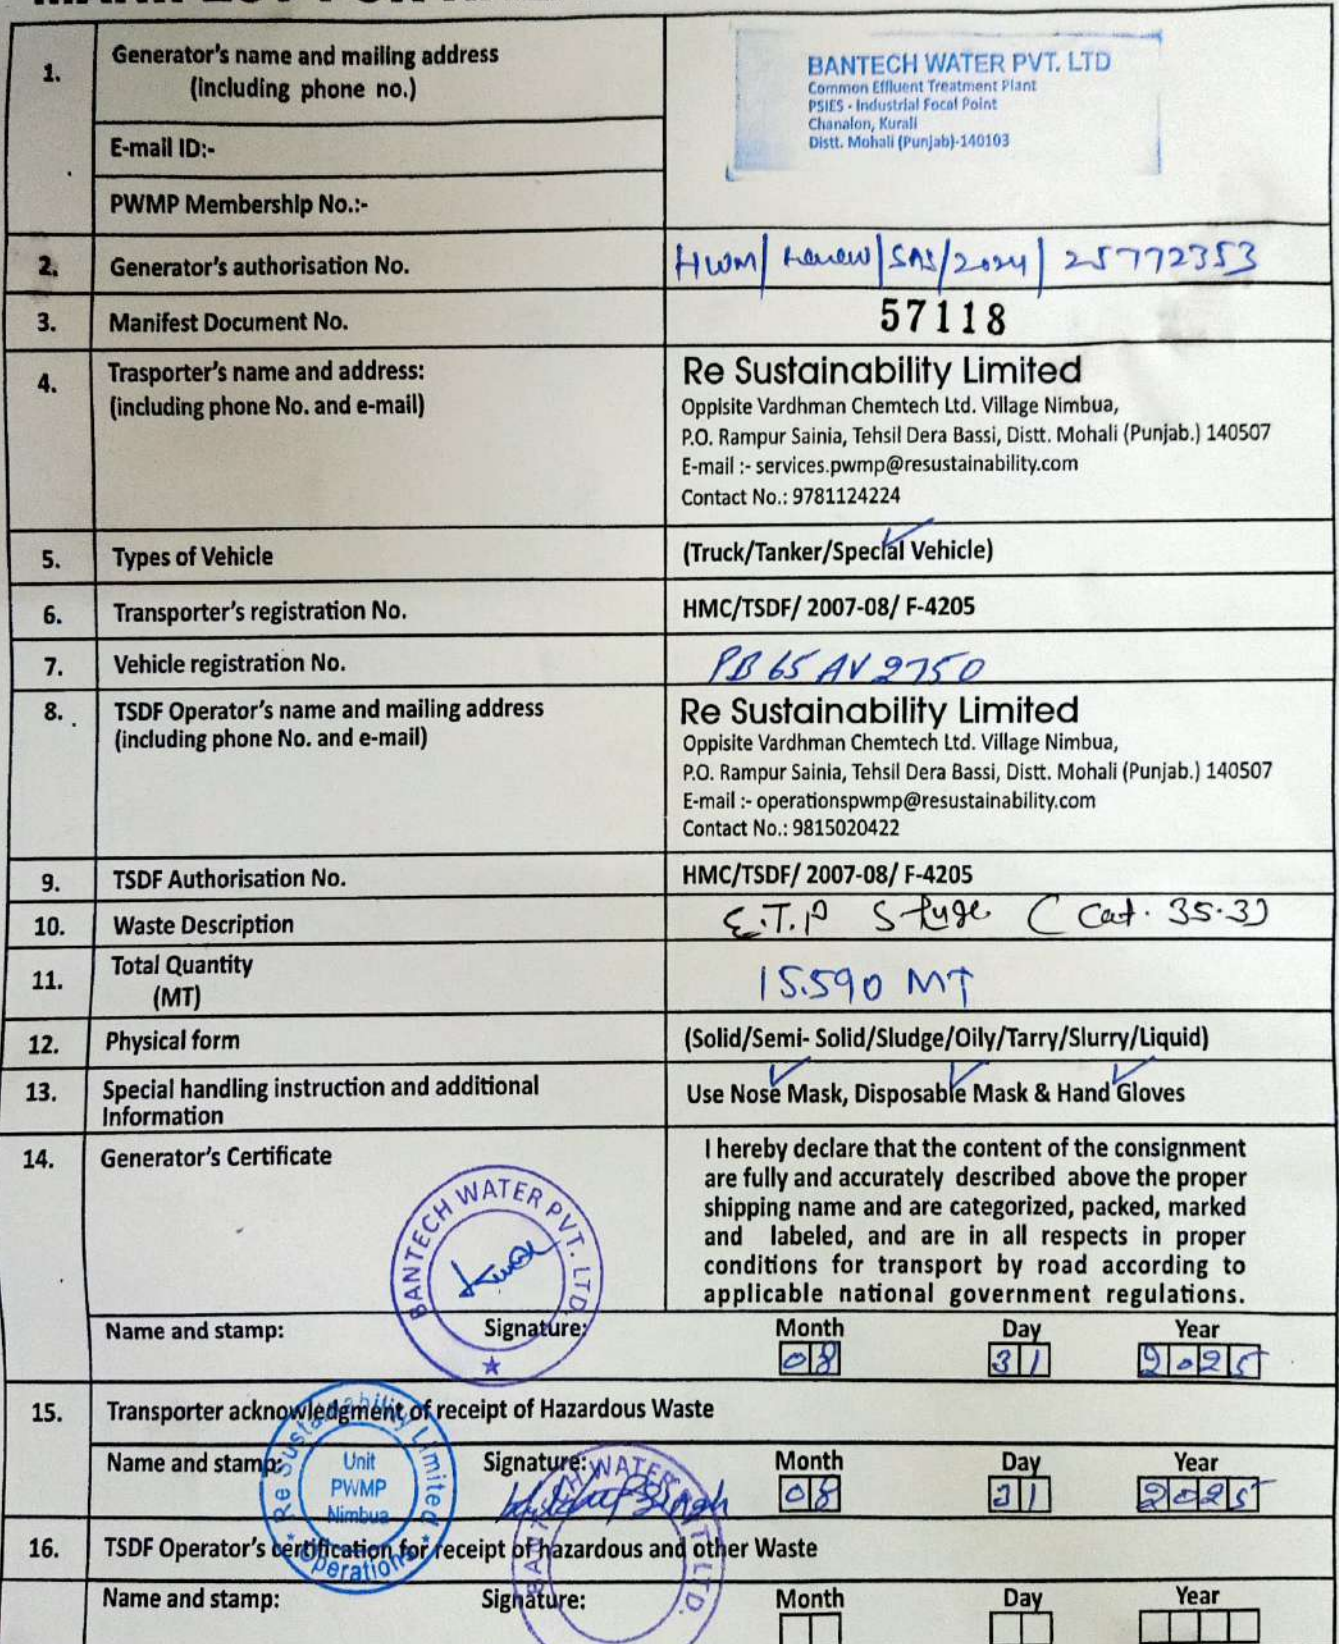 1.
Generator's name and mailing address
(including phone no.)
E-mail ID:-
PWMP Membership No.:-
BANTECH WATER PVT. LTD
Common Effluent Treatment Plant
PSIES - Industrial Focal Point
Chanalon, Kurali
Distt. Mohali (Punjab)-140103
2. Generator's authorisation No. HWM/Renew/SAS/2024/25772353
3. Manifest Document No. 57118
4. Trasporter's name and address:
(including phone No. and e-mail)
Re Sustainability Limited
Oppisite Vardhman Chemtech Ltd. Village Nimbua,
P.O. Rampur Sainia, Tehsil Dera Bassi, Distt. Mohali (Punjab.) 140507
E-mail :- services.pwmp@resustainability.com
Contact No.: 9781124224
5. Types of Vehicle (Truck/Tanker/Special Vehicle)
6. Transporter's registration No. HMC/TSDF/ 2007-08/ F-4205
7. Vehicle registration No. PB 65 AV 9750
8. TSDF Operator's name and mailing address
(including phone No. and e-mail)
Re Sustainability Limited
Oppisite Vardhman Chemtech Ltd. Village Nimbua,
P.O. Rampur Sainia, Tehsil Dera Bassi, Distt. Mohali (Punjab.) 140507
E-mail :- operationspwmp@resustainability.com
Contact No.: 9815020422
9. TSDF Authorisation No. HMC/TSDF/ 2007-08/ F-4205
10. Waste Description E.T.P Sluge (Cat. 35.3)
11. Total Quantity
(MT)
15.590 MT
12. Physical form (Solid/Semi- Solid/Sludge/Oily/Tarry/Slurry/Liquid)
13. Special handling instruction and additional
Information
Use Nose Mask, Disposable Mask & Hand Gloves
14. Generator's Certificate
I hereby declare that the content of the consignment
are fully and accurately described above the proper
shipping name and are categorized, packed, marked
and labeled, and are in all respects in proper
conditions for transport by road according to
applicable national government regulations.
BANTECH WATER PVT. LTD.
Name and stamp: Signature: Month Day Year
08 31 2025
15. Transporter acknowledgment of receipt of Hazardous Waste
Name and stamp: Signature: Month Day Year
08 31 2025
Re Sustainability Limited
Unit
PWMP
Nimbua
Operations
BANTECH WATER PVT. LTD.
16. TSDF Operator's certification for receipt of hazardous and other Waste
Name and stamp: Signature: Month Day Year